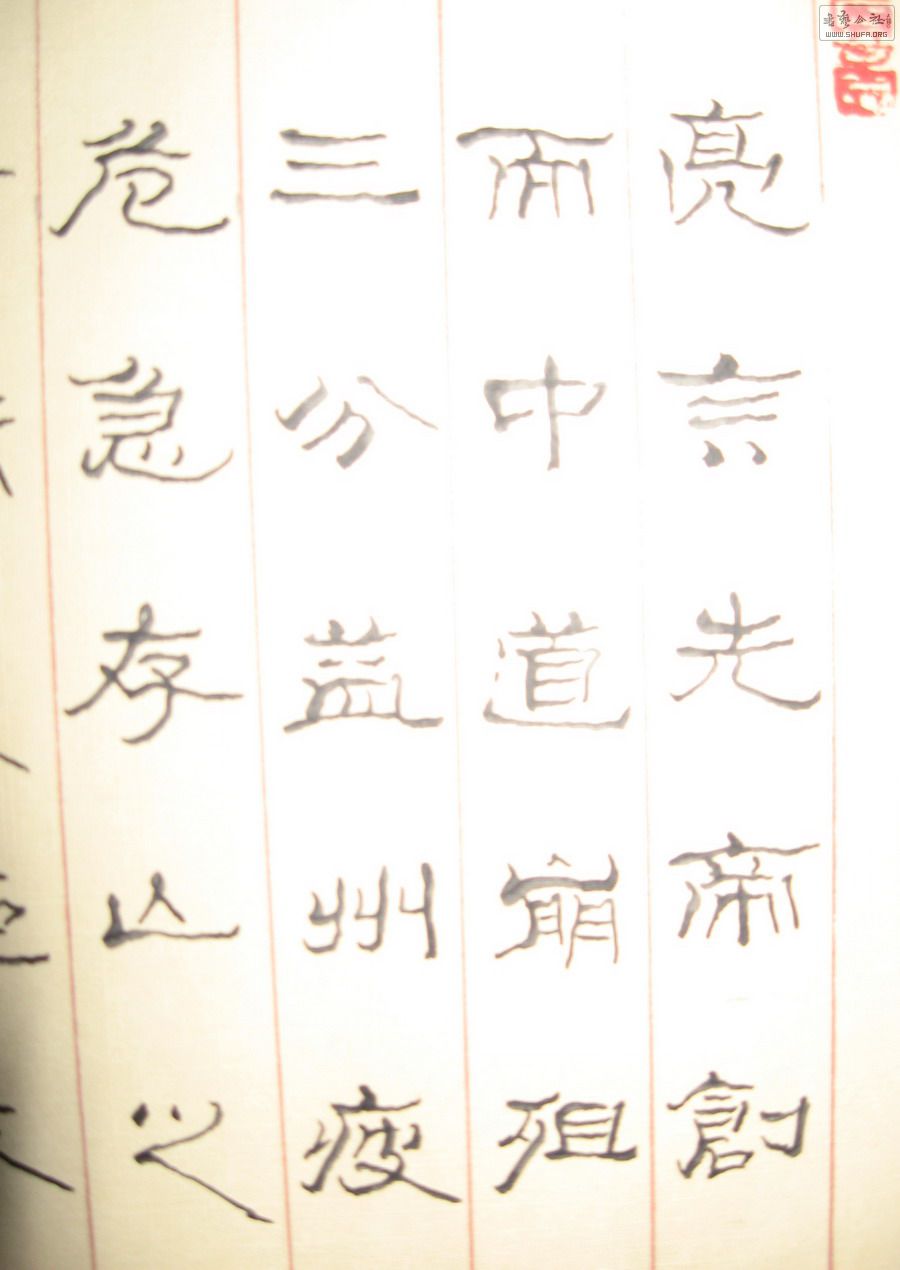 亮言先帝創
而中道崩殂
三分益州疲
危急存亡之
WWW.SHUFA.ORG